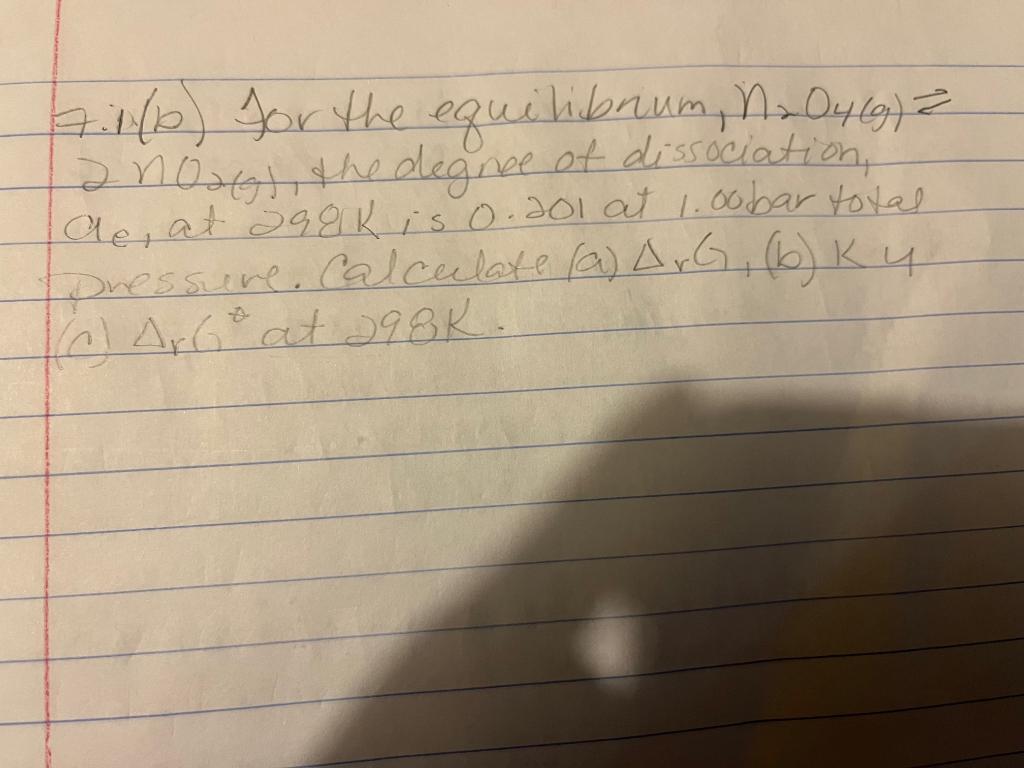 7.1(b) For the equilibrium, N₂O₄(g) ⇌
2 NO₂(g), the degree of dissociation,
αe, at 298K is 0.201 at 1.00bar total
pressure. Calculate (a) ΔrG, (b) K 4
(c) ΔrG° at 298K.